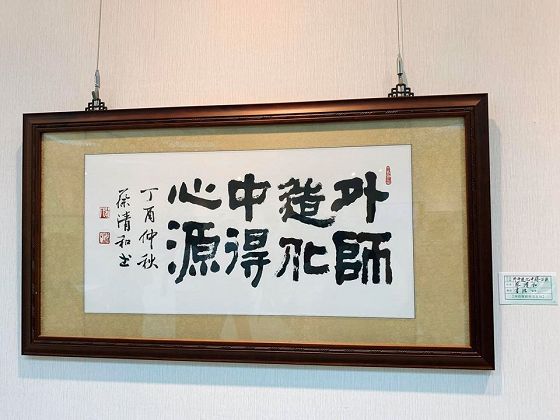 外師
造化
中得
心源
丁酉仲秋
蔡清和书